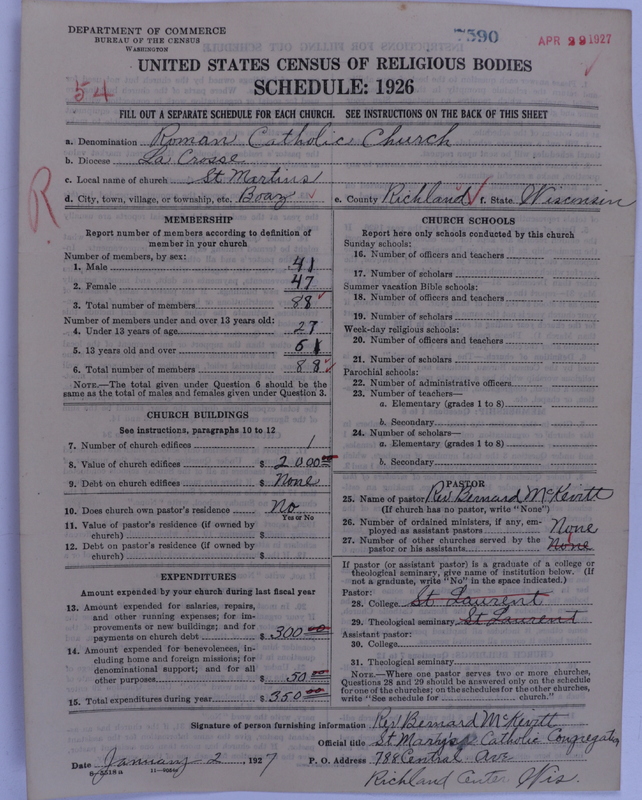 DEPARTMENT OF COMMERCE
BUREAU OF THE CENSUS
WASHINGTON
7590
APR 29 1927
UNITED STATES CENSUS OF RELIGIOUS BODIES
SCHEDULE: 1926
54
FILL OUT A SEPARATE SCHEDULE FOR EACH CHURCH. SEE INSTRUCTIONS ON THE BACK OF THIS SHEET
a. Denomination Roman Catholic Church
b. Diocese La Crosse
c. Local name of church St Martins
d. City, town, village, or township, etc. Boaz e. County Richland f. State Wisconsin
R
MEMBERSHIP
Report number of members according to definition of
member in your church
Number of members, by sex:
1. Male 41
2. Female 47
3. Total number of members 88
Number of members under and over 13 years old:
4. Under 13 years of age 27
5. 13 years old and over 61
6. Total number of members 88
NOTE.—The total given under Question 6 should be
same as the total of males and females given under Question 3.
CHURCH BUILDINGS
See instructions, paragraphs 10 to 12
7. Number of church edifices 1
8. Value of church edifices $ 2000 00
9. Debt on church edifices $ None
10. Does church own pastor's residence? No
Yes or No
11. Value of pastor's residence (if owned by
church) $
12. Debt on pastor's residence (if owned by
church) $
EXPENDITURES
Amount expended by your church during last fiscal year
13. Amount expended for salaries, repairs,
and other running expenses; for im-
provements or new buildings; and for
payments on church debt $ 300 00
14. Amount expended for benevolences, in-
cluding home and foreign missions; for
denominational support; and for all
other purposes $ 50 00
15. Total expenditures during year $ 350 00
CHURCH SCHOOLS
Report here only schools conducted by this church
Sunday schools:
16. Number of officers and teachers
17. Number of scholars
Summer vacation Bible schools:
18. Number of officers and teachers
19. Number of scholars
Week-day religious schools:
20. Number of officers and teachers
21. Number of scholars
Parochial schools:
22. Number of administrative officers
23. Number of teachers—
a. Elementary (grades 1 to 8)
b. Secondary
24. Number of scholars—
a. Elementary (grades 1 to 8)
b. Secondary
PASTOR
25. Name of pastor Rev Bernard McKevitt
(If church has no pastor, write "None")
26. Number of ordained ministers, if any, em-
ployed as assistant pastors None
27. Number of other churches served by the
pastor or his assistants None
If pastor (or assistant pastor) is a graduate of a college or
theological seminary, give name of institution below. (If
not a graduate, write "No" in the space indicated.)
Pastor:
28. College St Laurent
29. Theological seminary St Laurent
Assistant pastor:
30. College
31. Theological seminary
NOTE.—Where one pastor serves two or more churches,
Questions 28 and 29 should be answered only on the schedule
for one of the churches; on the schedules for the other churches,
write "See schedule for church."
Signature of person furnishing information Rev Bernard McKevitt
Official title St Marys Catholic Congregation
Date January 2, 1927 P. O. Address 788 Central Ave
Richland Center Wis.